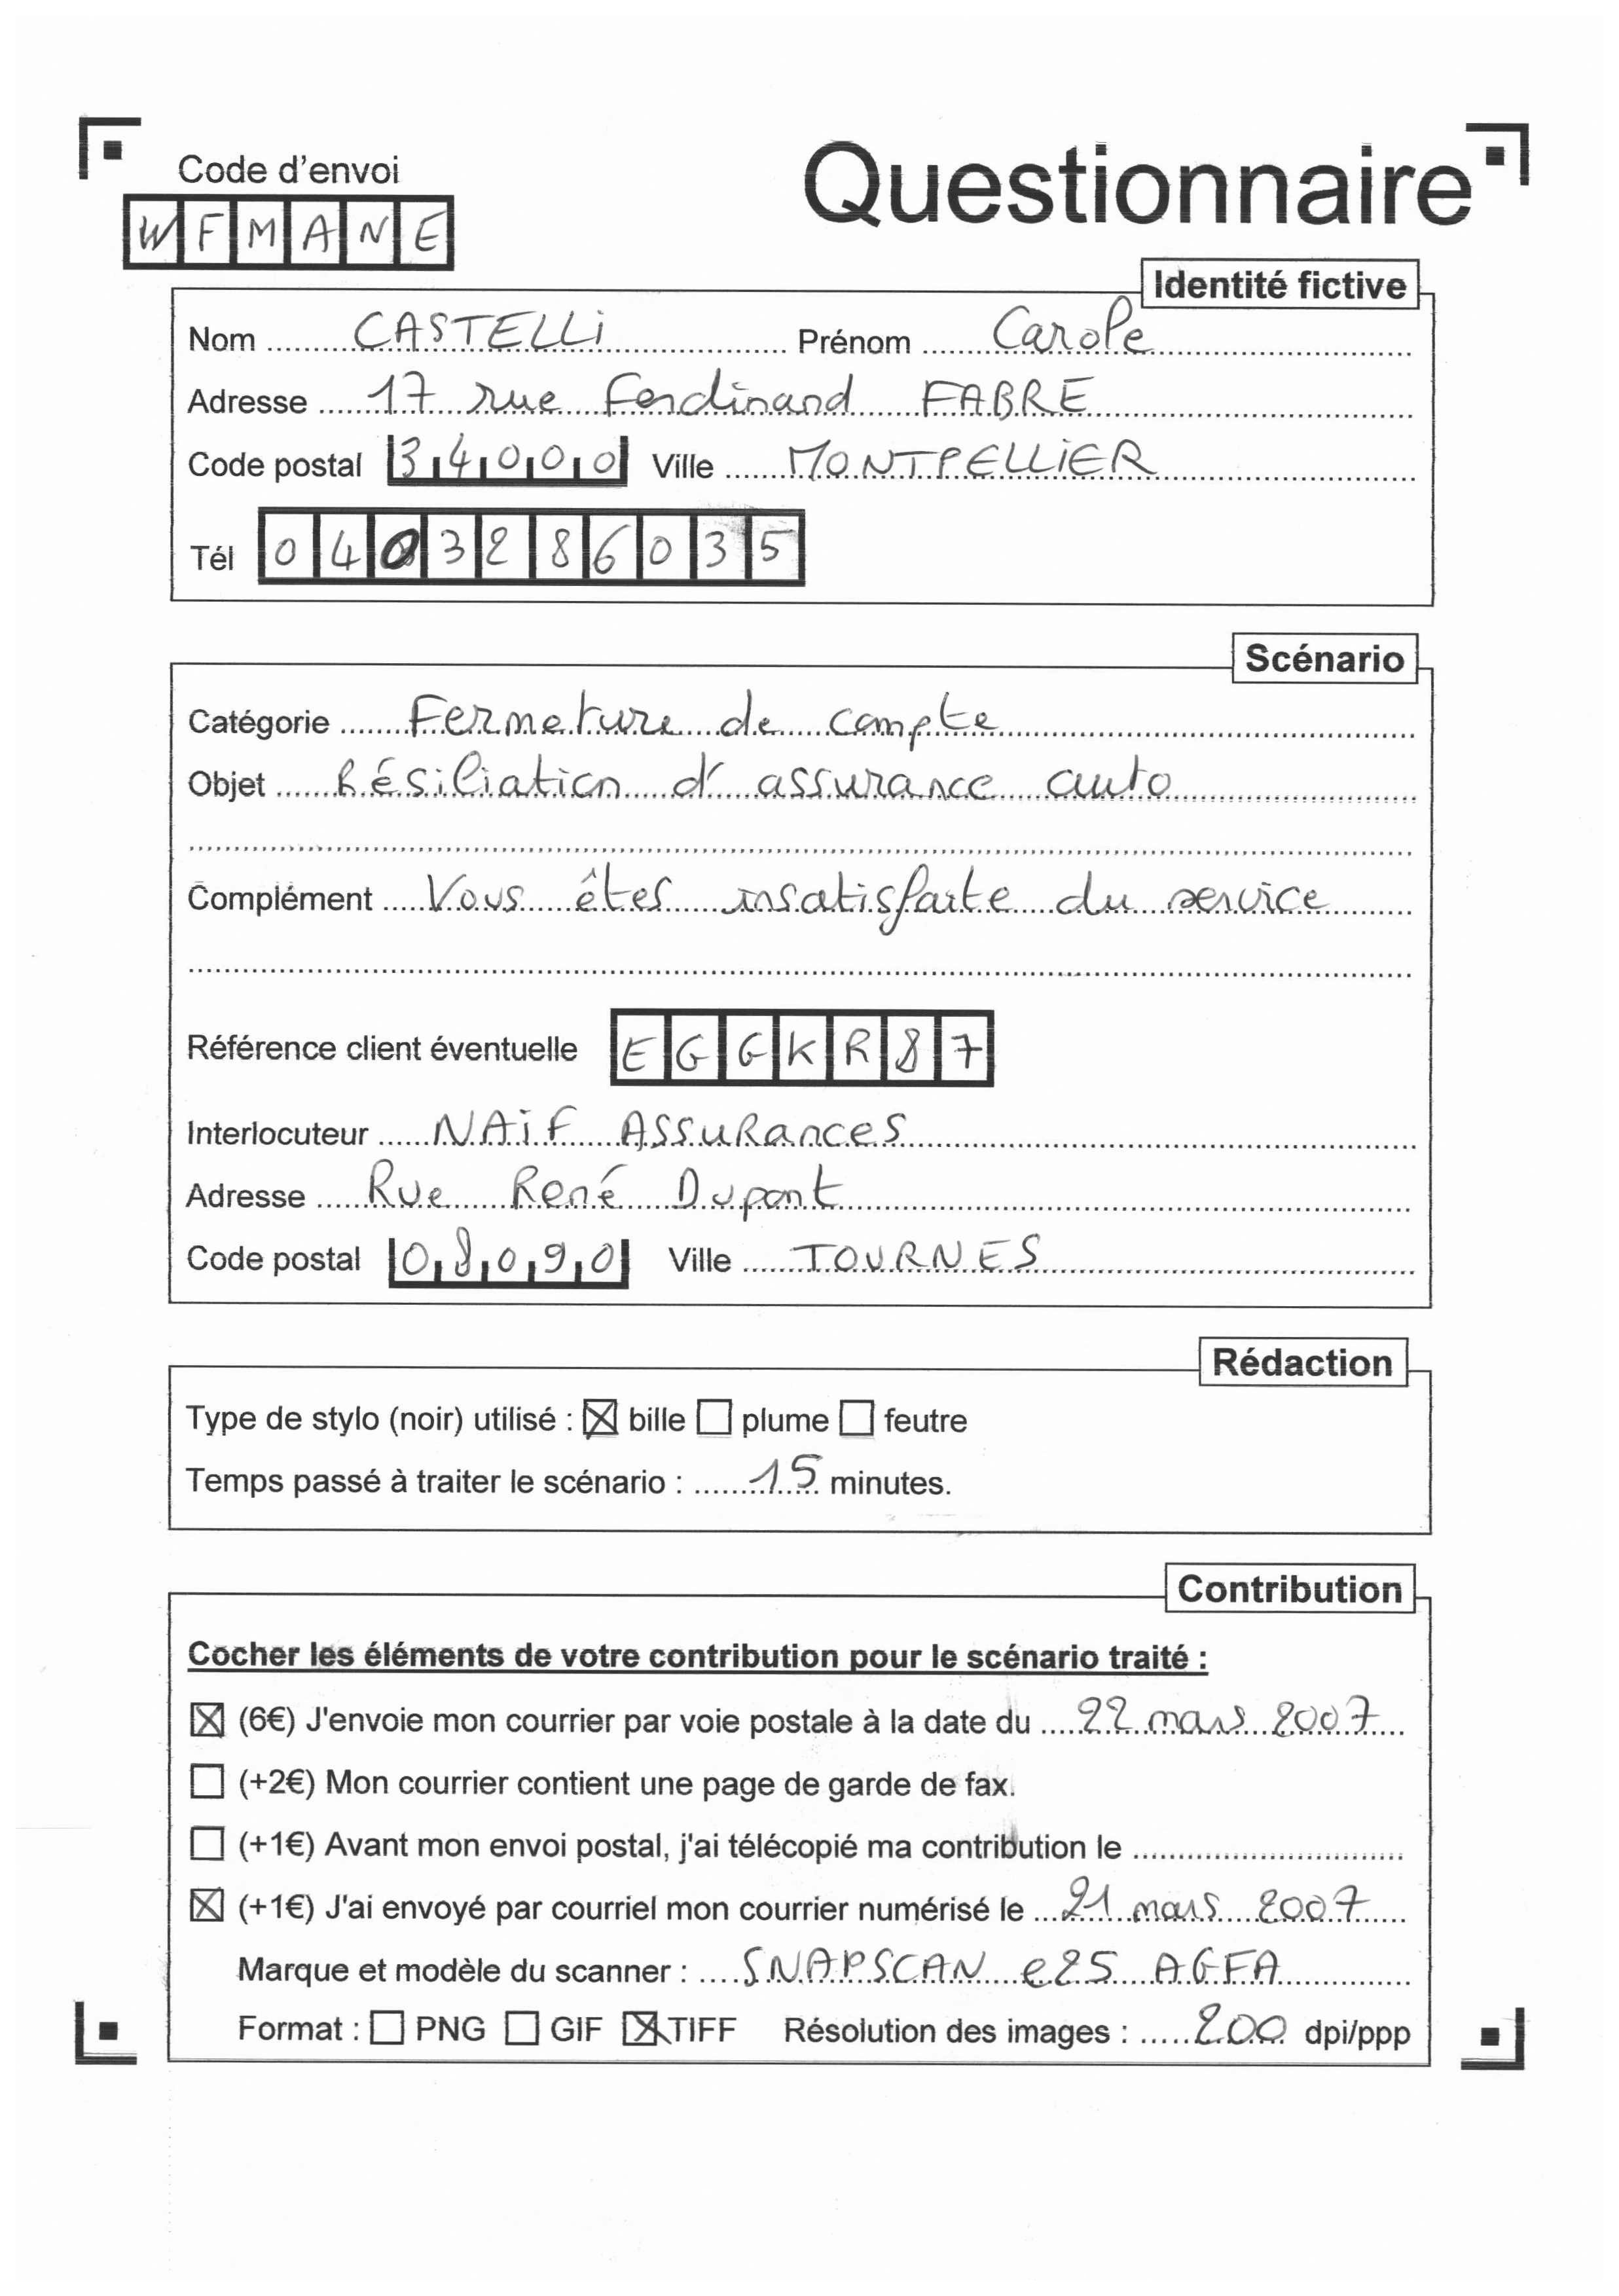 Code d'envoi
Questionnaire
WFMANE
Identité fictive
Nom CASTELLi Prénom Carole
Adresse 17 rue Ferdinand FABRE
Code postal 34000 Ville MONTPELLiER
Tél 0403286035
Scénario
Catégorie Fermeture de compte
Objet Résiliation d'assurance auto
Complément Vous êtes insatisfaite du service
Référence client éventuelle EGGKR87
Interlocuteur NAiF ASSURANCES
Adresse Rue René Dupont
Code postal 08090 Ville TOURNES
Rédaction
Type de stylo (noir) utilisé : ☒ bille ☐ plume ☐ feutre
Temps passé à traiter le scénario : 15 minutes.
Contribution
Cocher les éléments de votre contribution pour le scénario traité :
☒ (6€) J'envoie mon courrier par voie postale à la date du 22 mars 2007
☐ (+2€) Mon courrier contient une page de garde de fax.
☐ (+1€) Avant mon envoi postal, j'ai télécopié ma contribution le
☒ (+1€) J'ai envoyé par courriel mon courrier numérisé le 21 mars 2007
Marque et modèle du scanner : SNAPSCAN e25 AGFA
Format : ☐ PNG ☐ GIF ☒ TIFF Résolution des images : 200 dpi/ppp